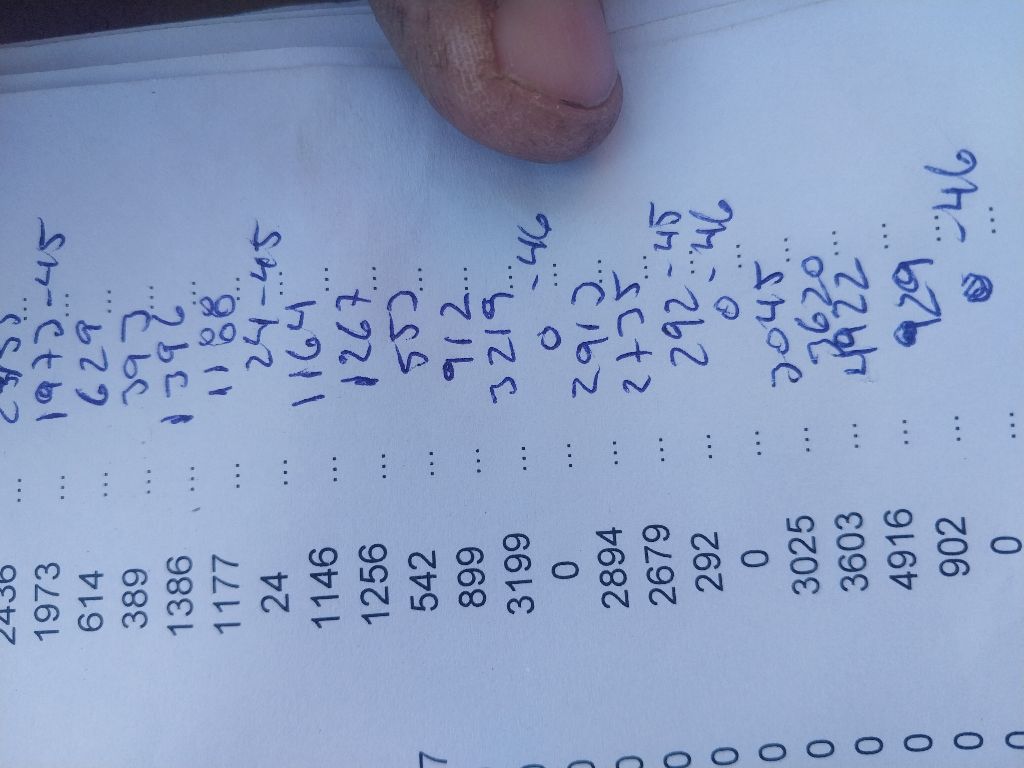 2436 ...
1973 ... 1973 -45 ...
614 ... 629 ...
389 ... 393 ...
1386 ... 1396 ...
1177 ... 1188 ...
24 ... 24 -45 ...
1146 ... 1164 ...
1256 ... 1267 ...
7 542 ... 553 ...
899 ... 912 ...
0 3199 ... 3219 ...
0 0 ... 0 -46 ...
0 2894 ... 2913 ...
0 2679 ... 2735 ...
0 292 ... 292 -45 ...
0 0 ... 0 -46 ...
0 3025 ... 3045 ...
0 3603 ... 3620 ...
0 4916 ... 4922 ...
0 902 ... 929 ...
0 0 ... 0 -46 ...